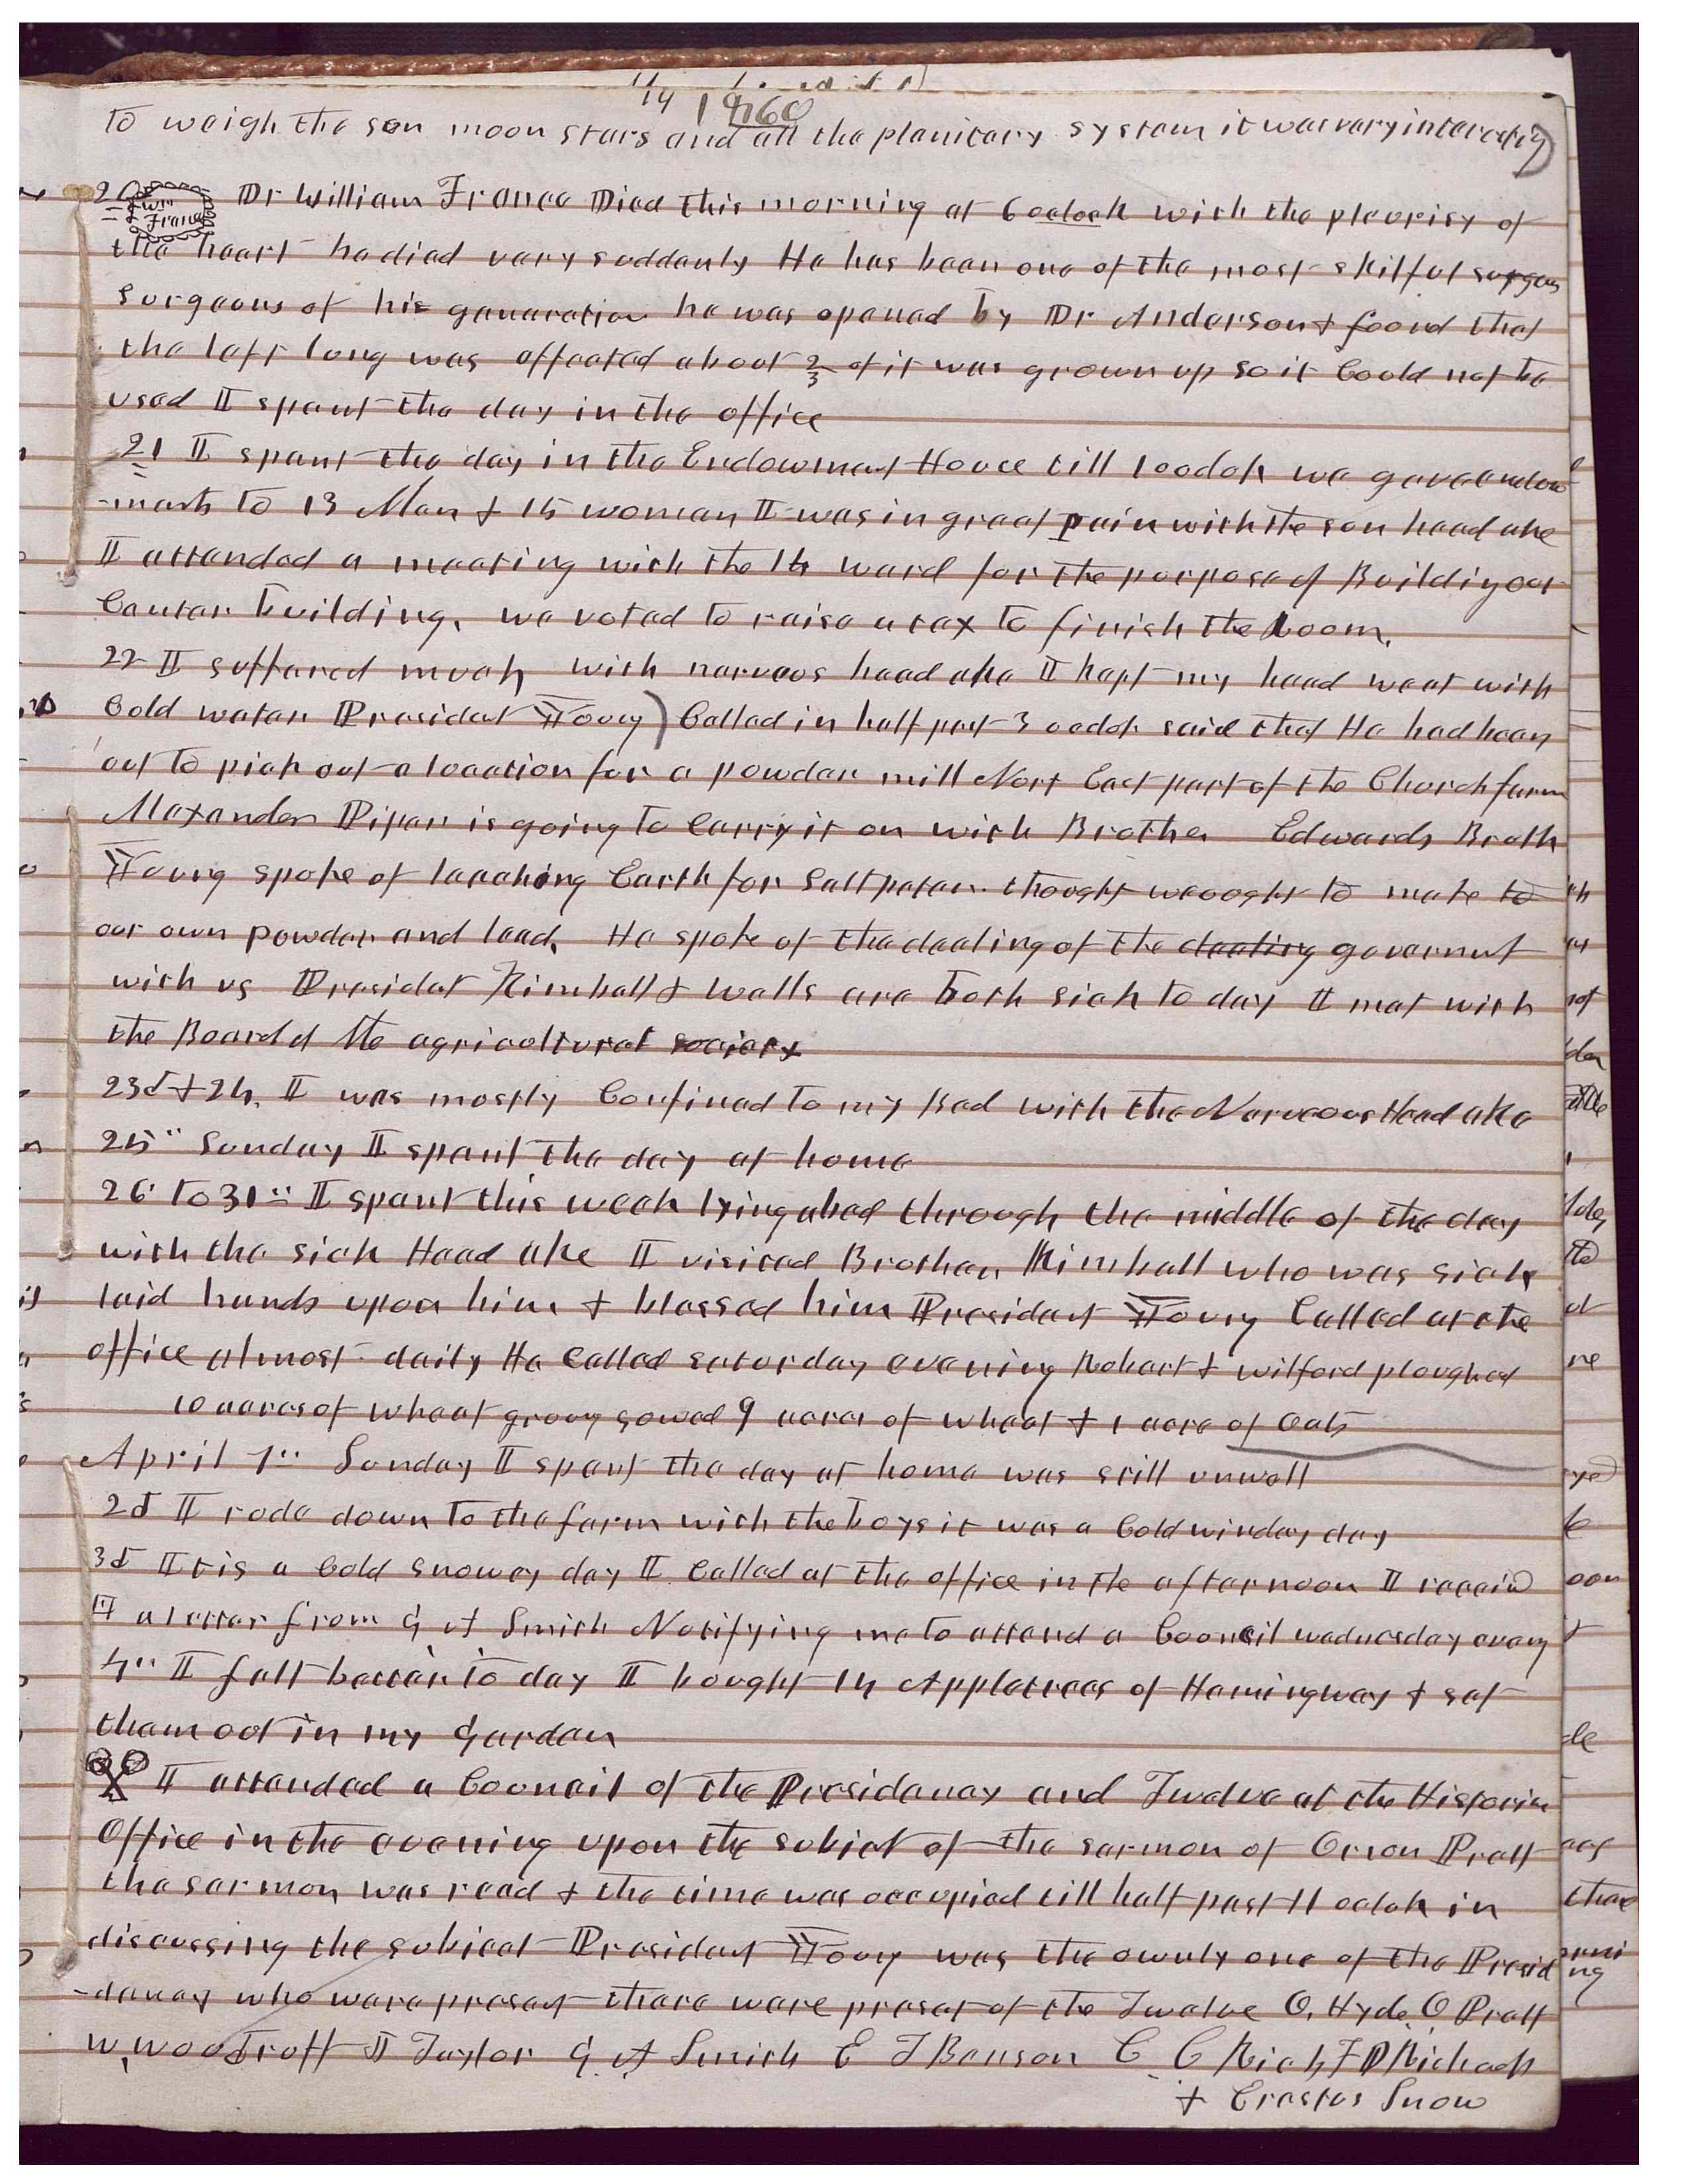 1860
to weigh the sun moon stars and all the planitary system it was very interestig
20 Wm France Dr William France Died this morning at 6 oclock with the pleurisy of
the heart he died very suddenly He has been one of the most skilful surgeons
Surgeons of his generation he was opened by Dr Anderson & found that
the left lung was affected about 2/3 of it was grown up so it Could not be
used I spent the day in the office
21 I spent the day in the Endowment House till 1 oclok we gave endow
-ments to 13 Men & 15 women I was in great pain with the sun head ake
I attended a meeting with the 14 ward for the purpose of Buildig our
Center building, we voted to raise a tax to finish the Room.
22 I suffered much with nervous head ake I kept my head weet with
Cold water President Young) Called in half past 3 oclok said that He had been
out to pick out a location for a powder mill Nort East part of the Church farm
Alexander Piper is going to Carry it on with Brother Edwards Broth
Young spoke of leaching Earth for Saltpeter. thought we ought to make to
our own powder and lead, He spoke of the dealing of the dealing governmt
with us Presidet Kimball & Wells are both sick to day I met with
the Board of the agricultural society
23d & 24. I was mostly Confined to my Bed with the Nerveous Head ake
25" Sunday I spent the day at home
26 to 31" I spent this week lying abed through the middle of the day
with the sick Head ake I visited Brother Kimball who was sick
laid hands upon him & blessed him President Young Called at the
office almost daily He Called saturday evening Robert & wilford ploughed
10 acres of wheat groug sowed 9 acres of wheat & 1 acre of Oats
April 1" Sunday I spent the day at home was still unwell
2d I rode down to the farm with the boys it was a Cold winday day
3d It is a Cold snowey day I Called at the office in the afternoon I receivd
a letter from G A Smith Notifying me to attend a Council wednesday eveng
4" I felt better to day I bought 14 Appletrees of Hemingway & set
them out in my Garden
I attended a Council of the Presidency and Twelve at the Historian
Office in the evening upon the subject of the sermon of Orson Pratt
the sermon was read & the time was occupied till half past 11 oclok in
discussing the subject President Young was the ownly one of the Presid
-dency who were present there were preset of the Twelve O. Hyde, O Pratt
W, Woodruff J Taylor G. A. Smith E T Benson C. C Rich, F D Richads
& Erastus Snow